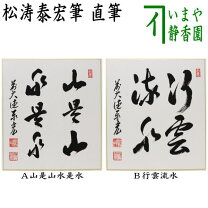 松涛泰宏筆 直筆
いまや
静香園
山是山
水是水
行雲
流水
A山是山水是水
B行雲流水